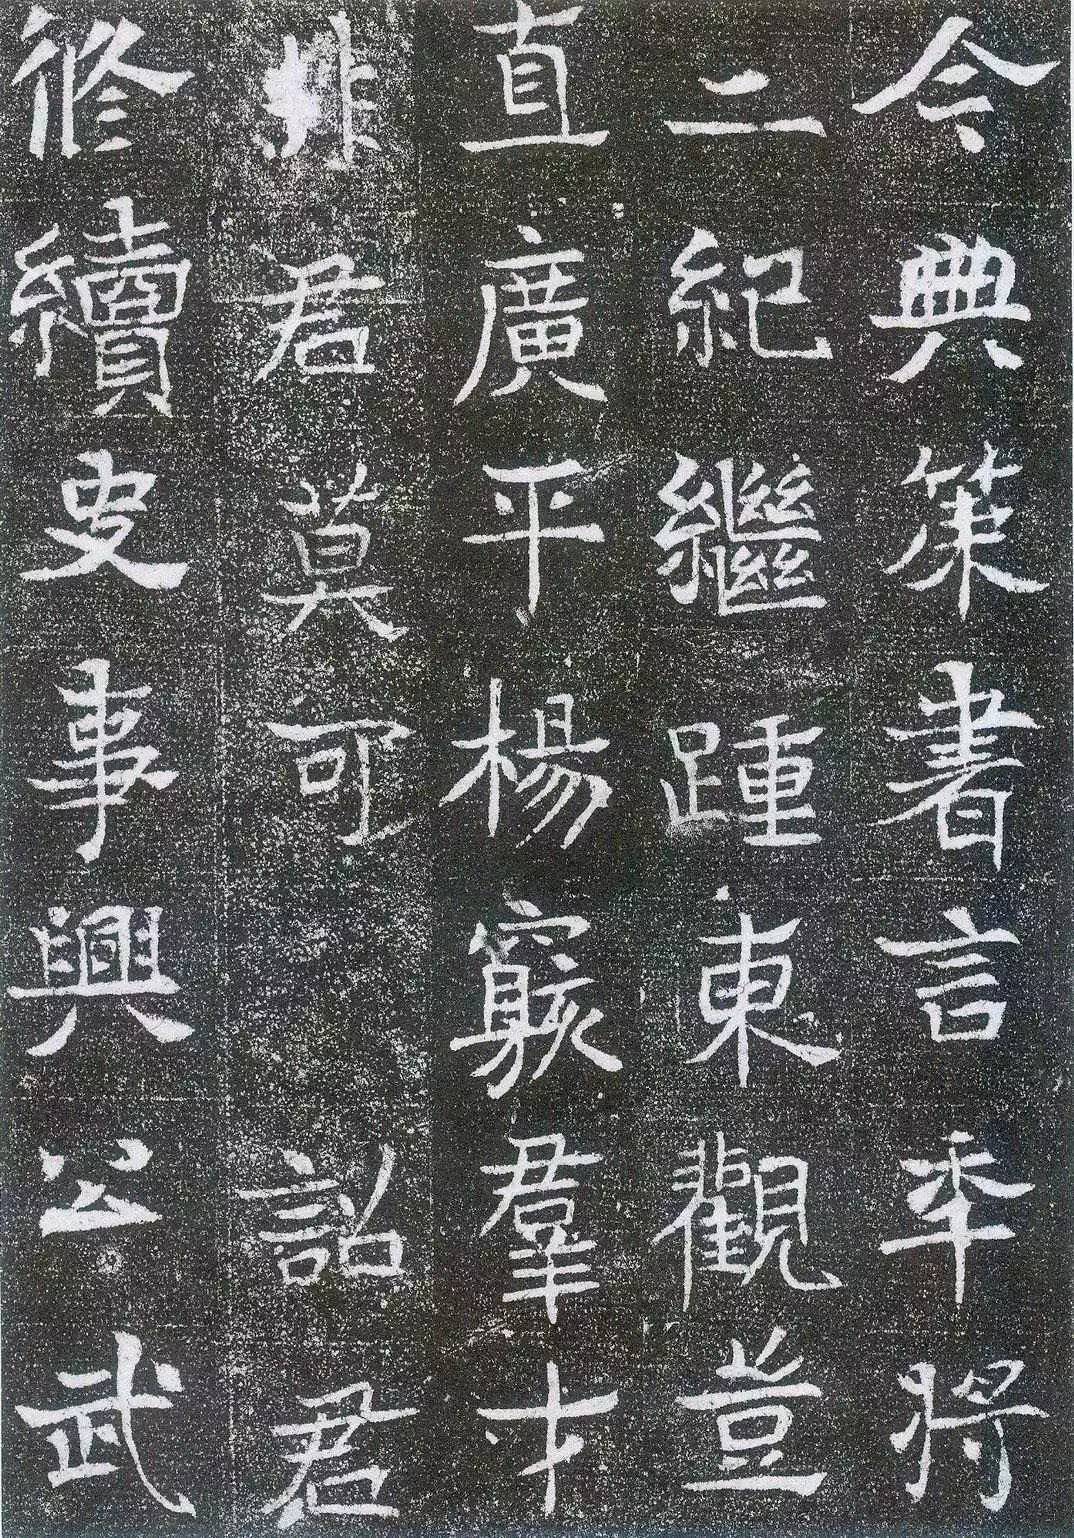 令典策書言年將
二紀繼踵東觀豈
直廣平楊覈羣才
非君莫可 詔君
修續史事興公武